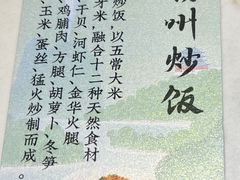 州炒饭
炒饭，以五常大米
芽米，融合十二种天然食材
干贝、河虾仁、金华火腿
、鸡脯肉、方腿、胡萝卜、冬笋
、玉米、蛋丝，猛火炒制而成。